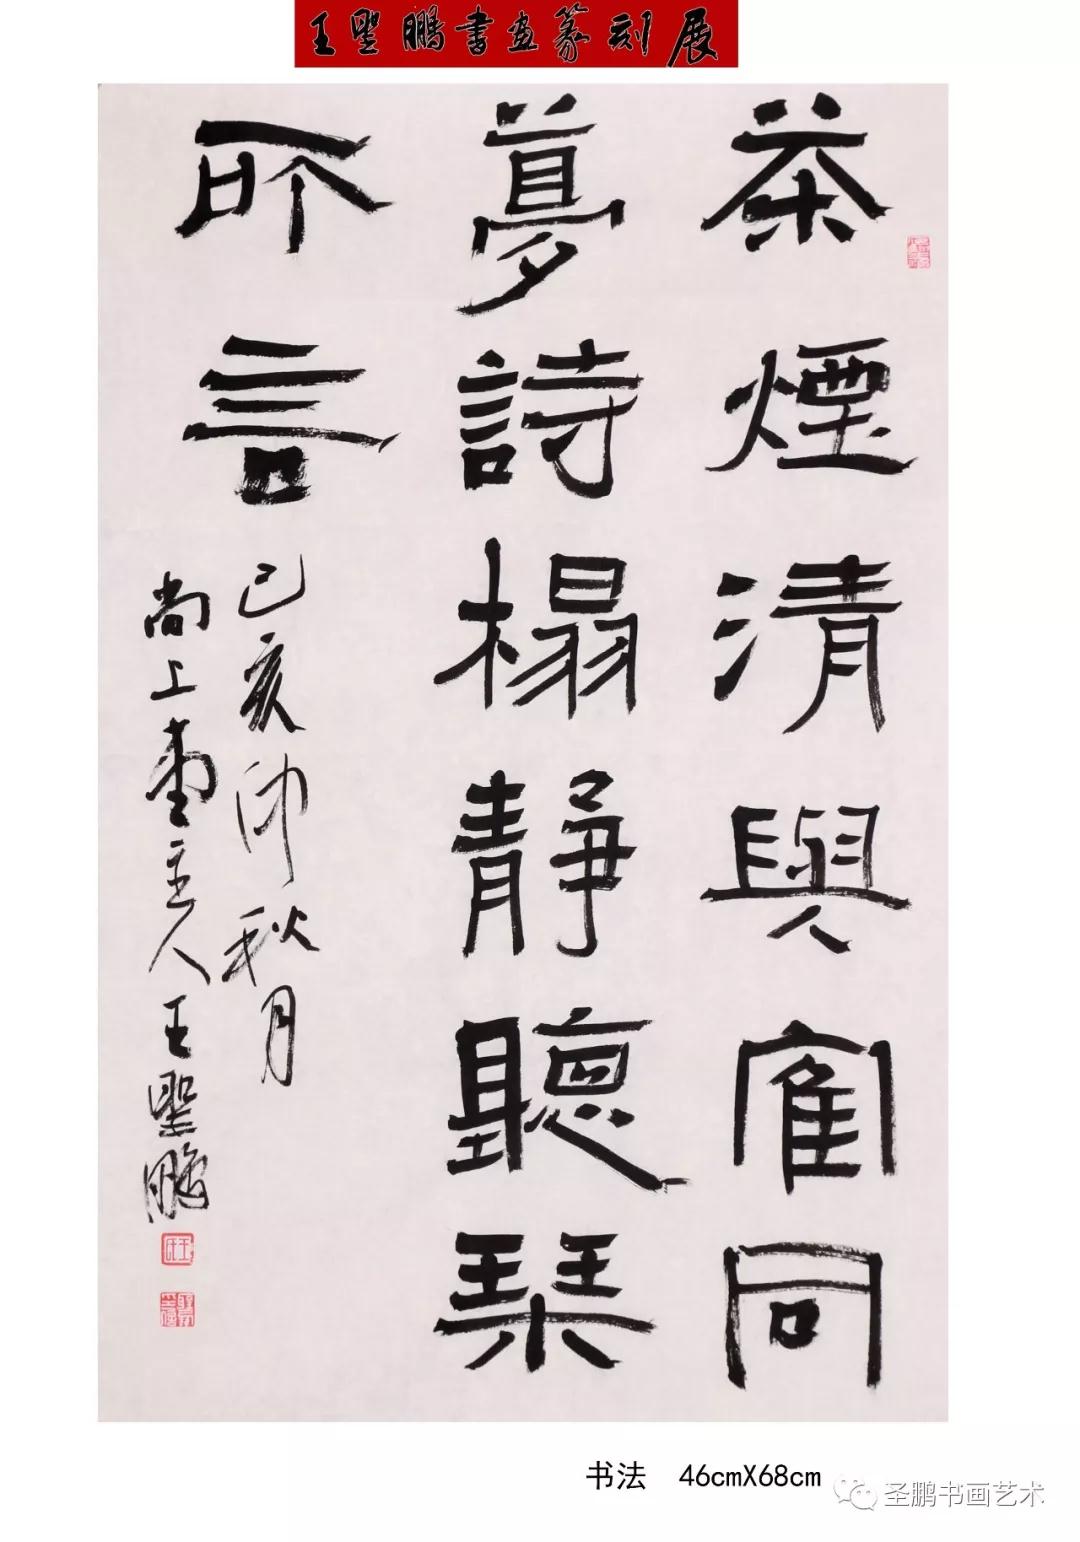 王聖鵬書画篆刻展
茶煙清與隺同
夢詩榻靜聽琹
所言
己亥仲秋月
尚上臺主人王聖鵬
书法 46cmX68cm
圣鹏书画艺术